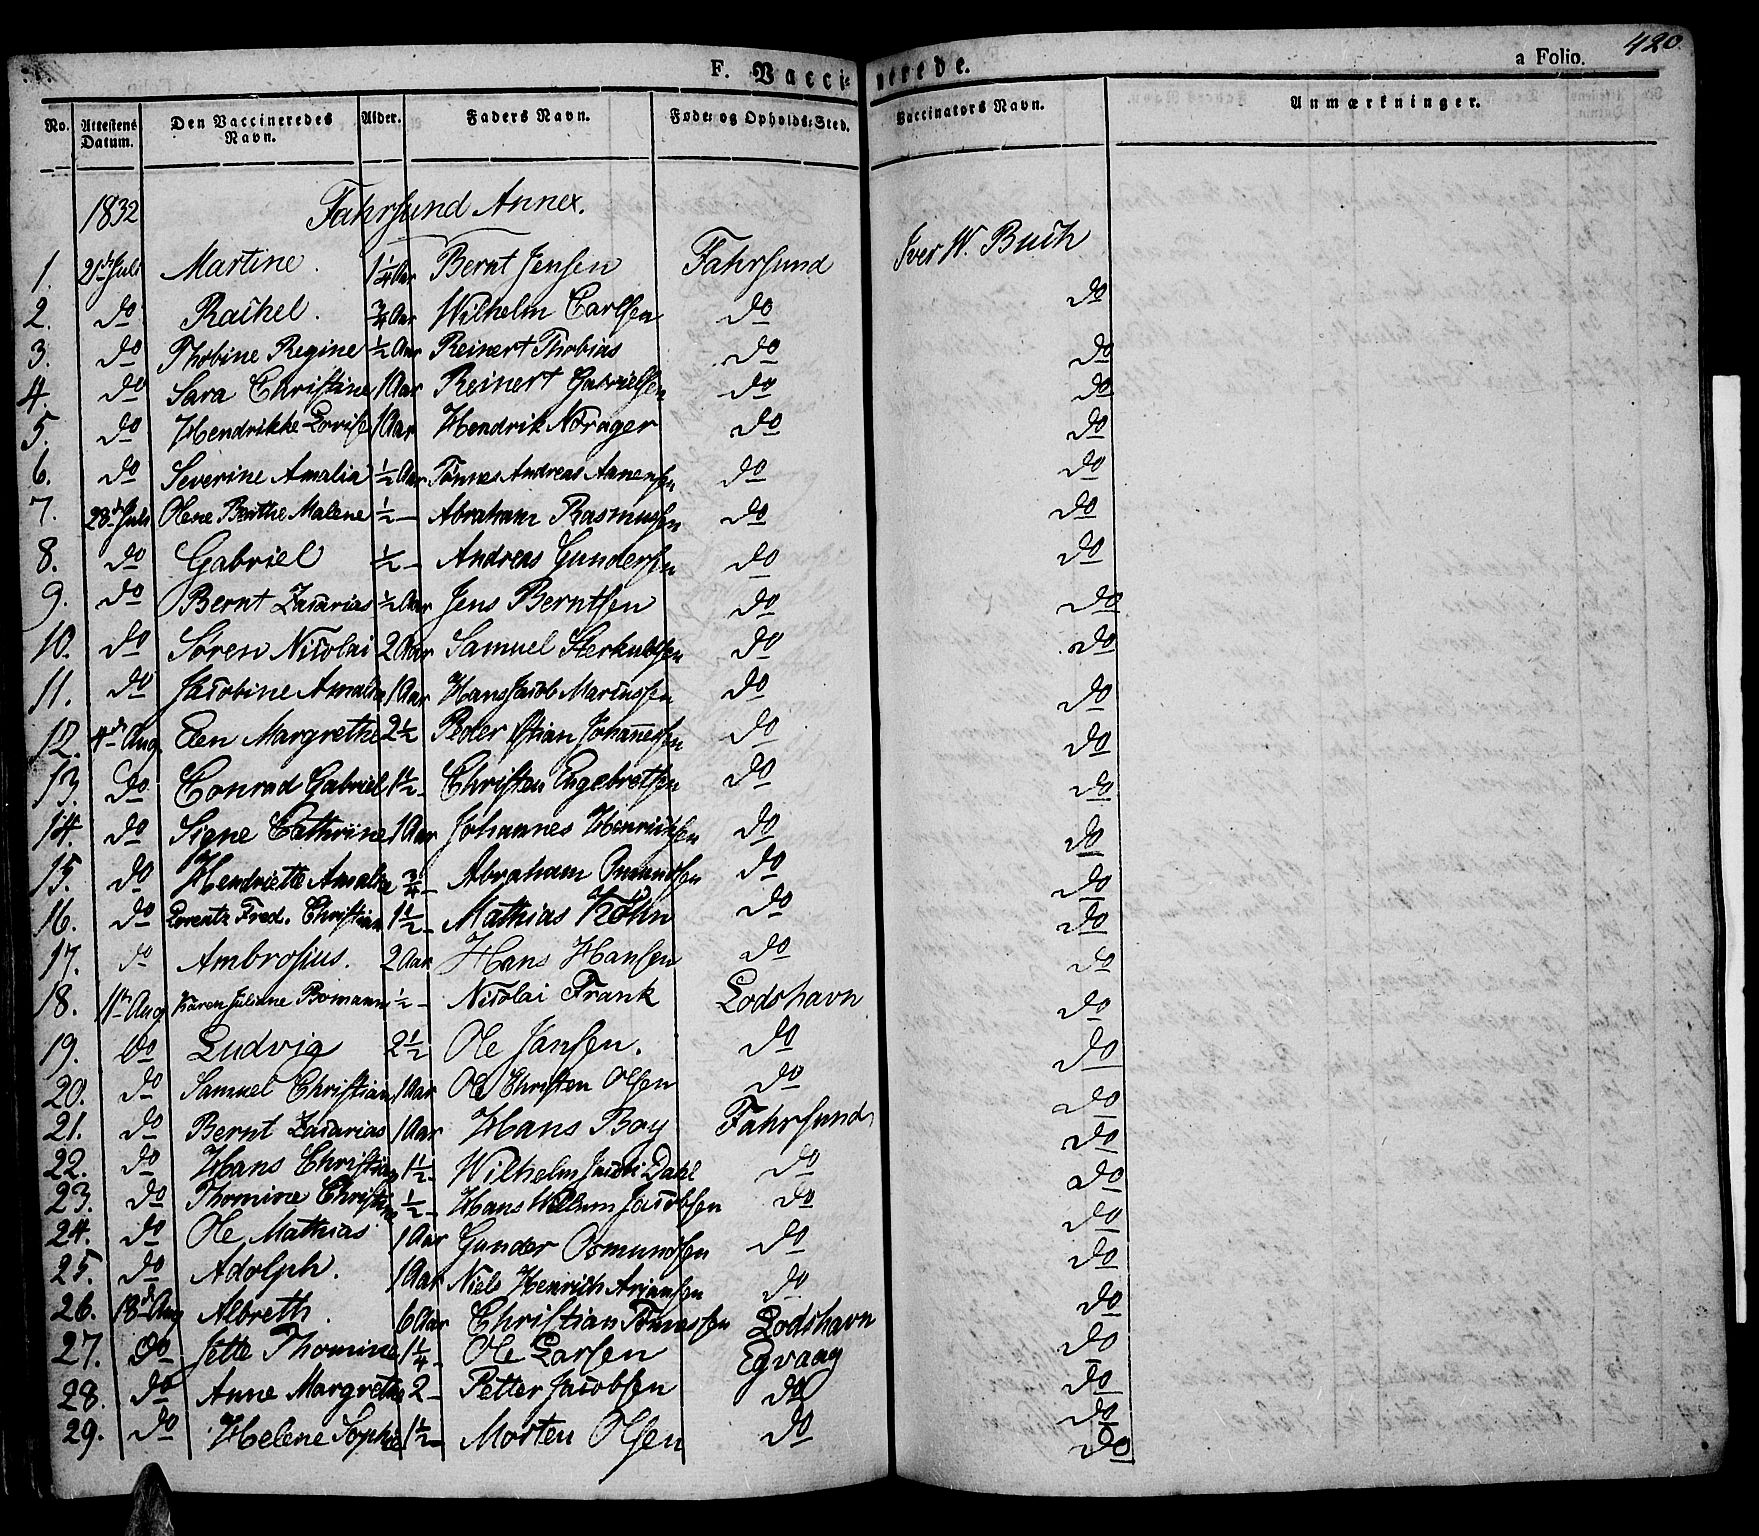 F. Vaccinerede. a Folio. 420.
No. Attestens Datum. Den Vaccineredes Navn. Alder. Faders Navn. Føde- og Opholds-Sted. Vaccinators Navn. Anmærkninger.
1832 Fahrsund Annex.
1. 21de Juli Martine. 1 1/4 Aar Bernt Jensen Fahrsund Iver W. Buch
2. do Rachel. 3/4 Aar Wilhelm Carlsen do do
3. do Thobine Regine 1/2 Aar Reinert Thobias do do
4. do Sara Christine 1 Aar Reinert Gabrielsen do do
5. do Hendrikke Lovise 1 Aar Hendrik Nörager do do
6. do Severine Amalia 1/2 Aar Tönnes Andreas Aanensen do do
7. 28de Juli Olene Berthe Malene 1/2 — Abraham Rasmussen do do
8. do Gabriel 1/2 — Andreas Gundersen do do
9. do Bernt Zacarias 1/2 Aar Jens Berntsen do do
10. do Søren Nicolai 2 Aar Samuel do do
11. do Jacobine Amalia 1 Aar Hans Jacob Marcussen do do
12. 4de Aug Elen Margrethe 2 1/2 Peder Johannessen do do
13. do Conrad Gabriel 1 1/2 — Christen Engebretsen do do
14. do Signe Cathrine 1 Aar Johannes Henrichsen do do
15. do Hendriette Amalia 3/4 — Abraham Omundsen do do
16. do Lorentz Fred. Christian 1 1/2 — Mathias Köhn do do
17. do Ambrosius. 2 Aar Hans Hansen do do
18. 11te Aug Karen Juliane Bomann 1/2 — Nicolai Frank Lodshavn do
19. do Ludvig 2 1/2 Ole Jansen. do do
20. do Samuel Christian 1 Aar Ole Christen Olsen do do
21. do Bernt Zacarias 1 Aar Hans Boy Fahrsund do
22. do Hans Christian 1 1/2 — Wilhelm Jacob Dahl do do
23. do Thomine Christine 1/2 — Hans Willum Jacobsen do do
24. do Ole Mathias 1 Aar Gunder Osmundsen do do
25. do Adolph. 1 Aar Niels Heinrich Arjansen do do
26. 18de Aug Albreth. 6 Aar Christian Tönnessen Lodshavn do
27. do Jette Thomine 1 1/4 — Ole Larsen Egvaag do
28. do Anne Margrethe 2 — Petter Jacobsen do do
29. do Helene Sophie 1 1/2 — Morten Olsen do do
do